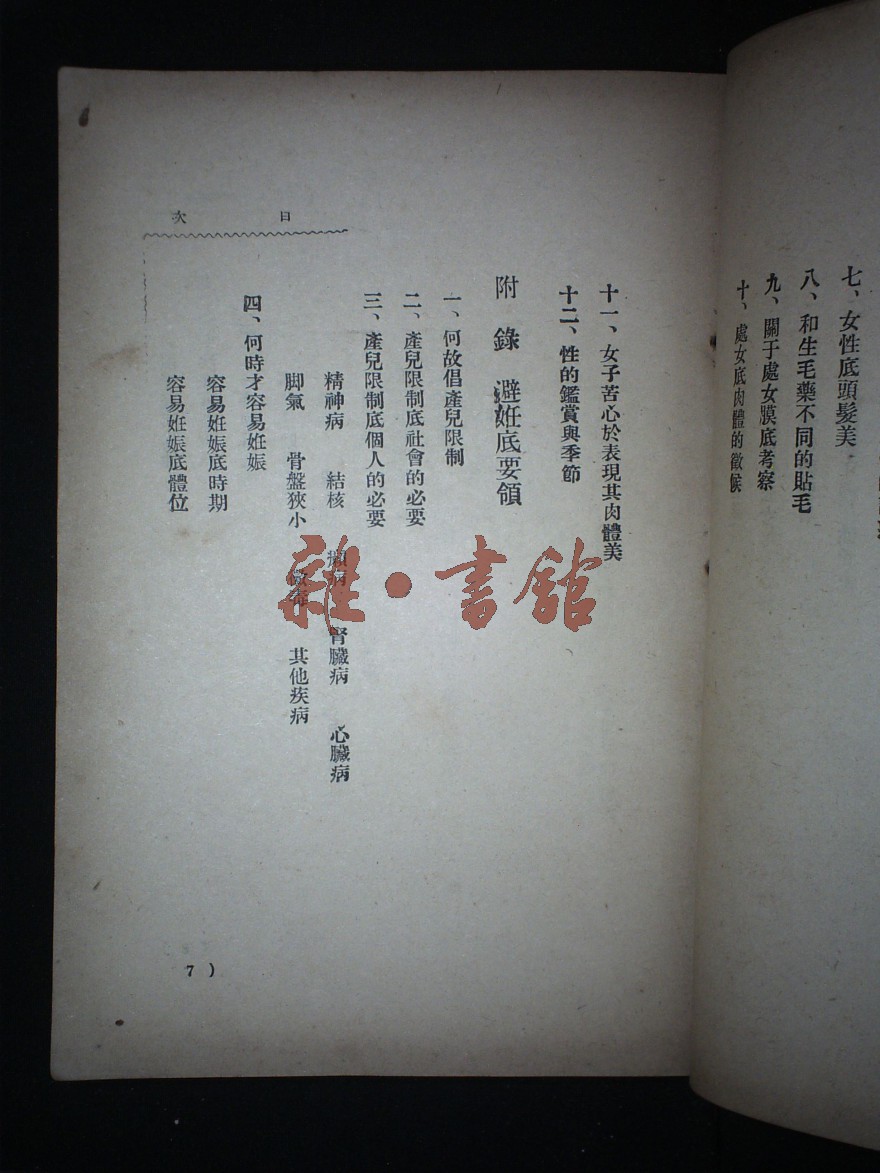 七、女性底頭髮美
八、和生毛藥不同的貼毛
九、關于處女膜底考察
十、處女底肉體的徵候
目次
十一、女子苦心於表現其肉體美
十二、性的鑑賞與季節
附錄 避姙底要領
一、何故倡產兒限制
二、產兒限制底社會的必要
三、產兒限制底個人的必要
精神病 結核 癩病 腎臟病 心臟病
脚氣 骨盤狹小 黴毒 其他疾病
四、何時才容易姙娠
容易姙娠底時期
容易姙娠底體位
7 )
雜·書館